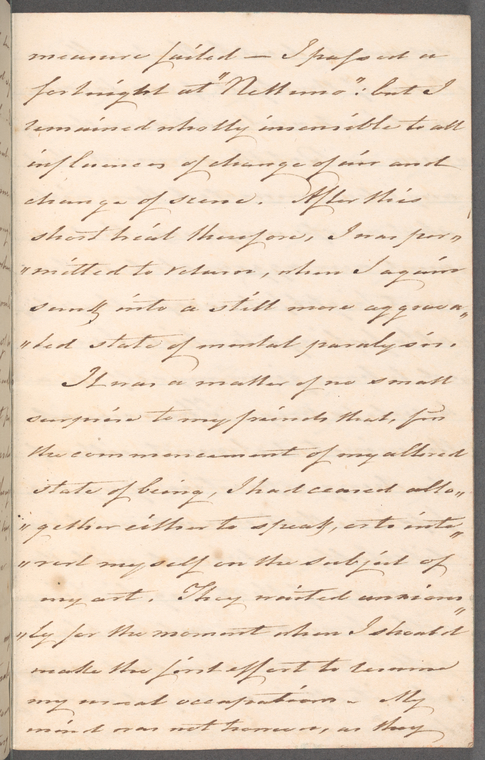 measure failed — I passed a
fortnight at "Nettuno": but I
remained wholly insensible to all
influences of change of air and
change of scene. After this
short trial therefore, I was per„
„mitted to return, when I again
sunk into a still more aggrava„
„ted state of mental paralysis.
It was a matter of no small
surprise to my friends that, from
the commencement of my altered
state of being, I had ceased alto„
„gether either to speak, or to inte„
„rest myself on the subject of
my art. They waited anxious„
„ly for the moment when I should
make the first effort to resume
my usual occupations. My
mind was not however, as they